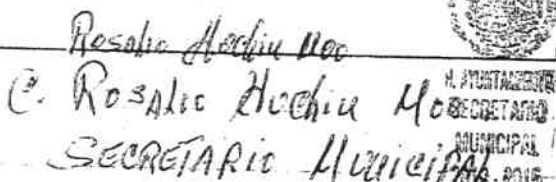 Rosalio Huchin Moo
C. Rosalio Huchin Moo
SECRETARIO Municipal
H. AYUNTAMIENTO
SECRETARIO
MUNICIPAL